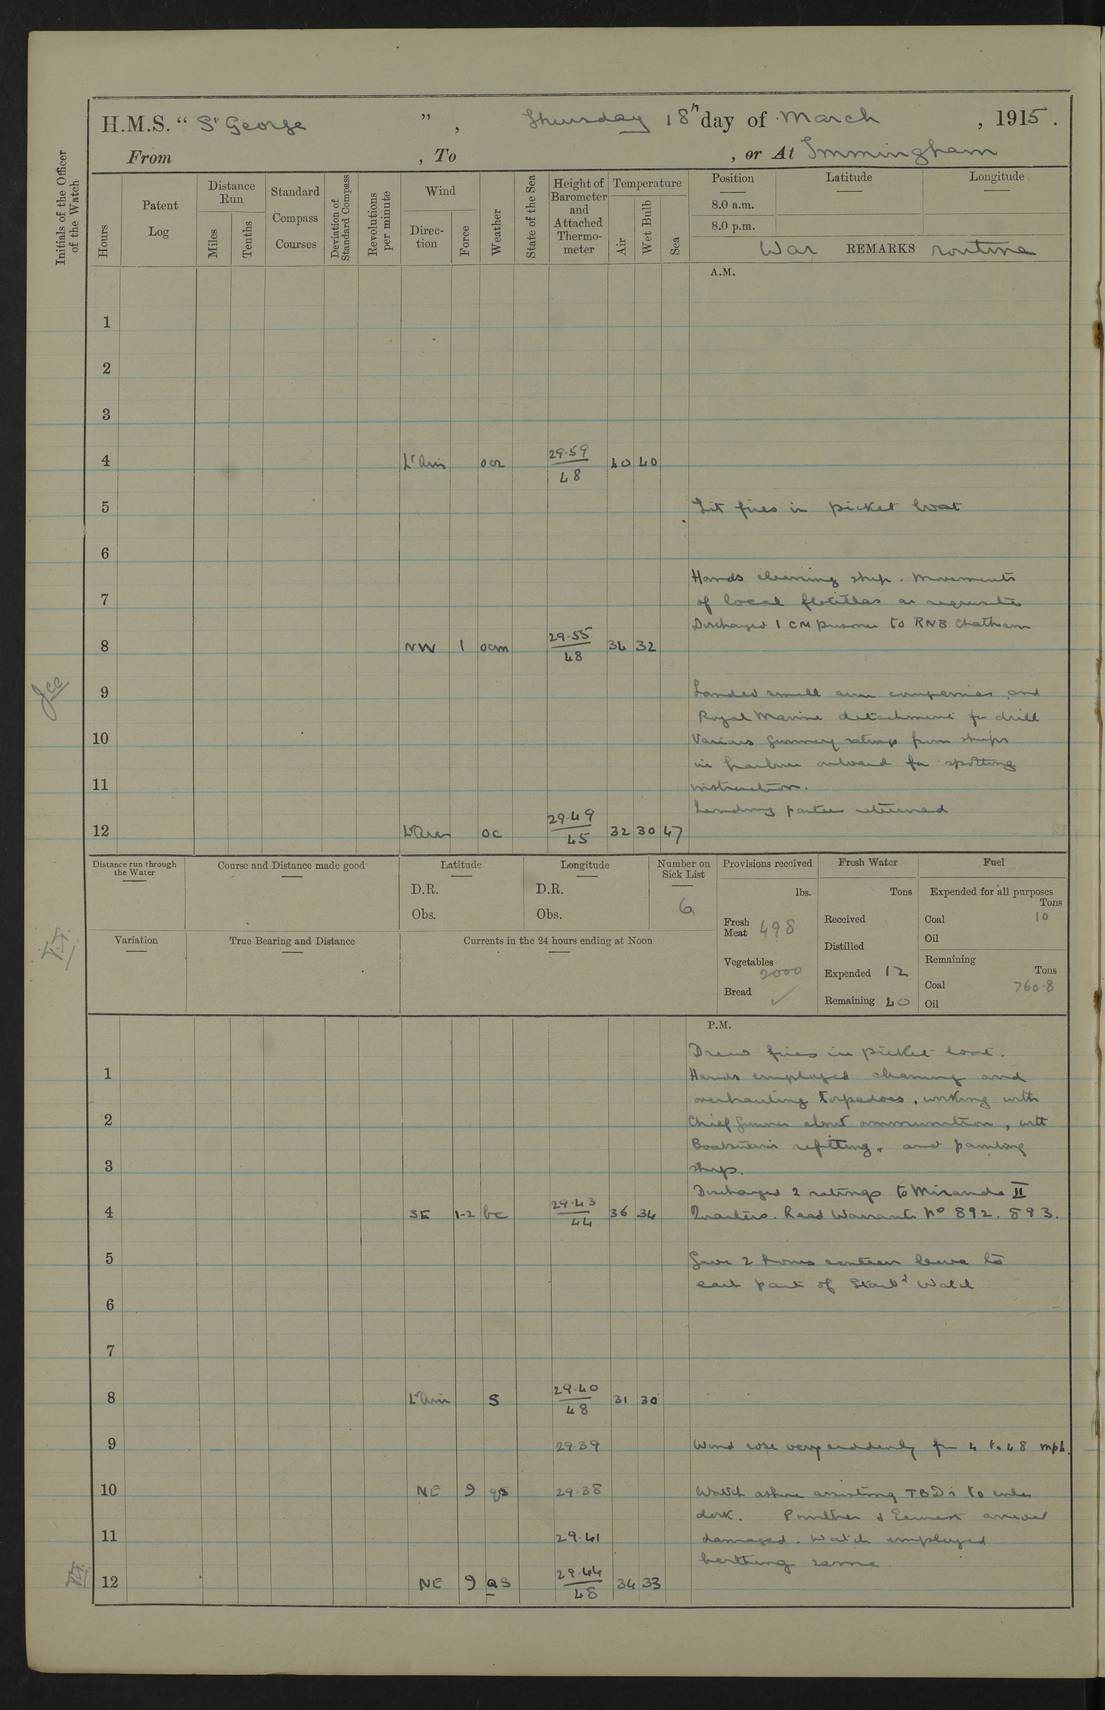 H.M.S. “ St George ” , Thursday 18th day of March , 1915 .
From , To , or At Immingham
Initials of the Officer of the Watch
Hours
Patent Log
Distance Run
Miles
Tenths
Standard Compass Courses
Deviation of Standard Compass
Revolutions per minute
Wind
Direction
Force
Weather
State of the Sea
Height of Barometer and Attached Thermometer
Temperature
Air
Wet Bulb
Sea
Position Latitude Longitude
8.0 a.m.
8.0 p.m.
War REMARKS routine
A.M.
1
2
3
4 Lt airs 29.59 48 40 40
5 Lit fires in picket boat
6
Hands cleaning ship. Movements
7 of local flotillas as requisite
Discharged 1 CM prisoner to RNB Chatham
8 NW 1 ocm 29.55 48 34 32
9 Landed small arm companies and
Royal Marine detachment for drill
10 Various Gunnery ratings from ships
in harbour onboard for spotting
11 instruction.
Landing parties returned
12 Lt airs oc 29.49 45 32 30 47
Distance run through the Water
Course and Distance made good
Latitude
D.R.
Obs.
Longitude
D.R.
Obs.
Number on Sick List
6
Provisions received
lbs.
Fresh Meat 498
Vegetables 2000
Bread ✓
Fresh Water
Tons
Received
Distilled
Expended 12
Remaining 40
Fuel
Expended for all purposes
Tons
Coal 10
Oil
Remaining
Tons
Coal 760.8
Oil
Variation
True Bearing and Distance
Currents in the 24 hours ending at Noon
P.M.
Drew fires in picket boat.
1 Hands employed cleaning and
overhauling torpedoes, working with
2 Chief Gunner about ammunition, with
Boatswain refitting, and painting
3 ship.
Discharged 2 ratings to Miranda II
4 SE 1-2 bc 29.43 44 36 34 Quarters. Read Warrants No 892. 893.
5 Gave 2 hours canteen leave to
each part of Starbd Watch
6
7
8 Lt airs S 29.40 48 31 30
9 29.39 Wind rose very suddenly fm 4 to 48 mph.
10 NE 9 qs 29.38 Watch ashore assisting TBDs to enter
dock. Panther & Earnest arrived
11 29.41 damaged. Watch employed
berthing same.
12 NE 9 QS 29.44 48 34 33